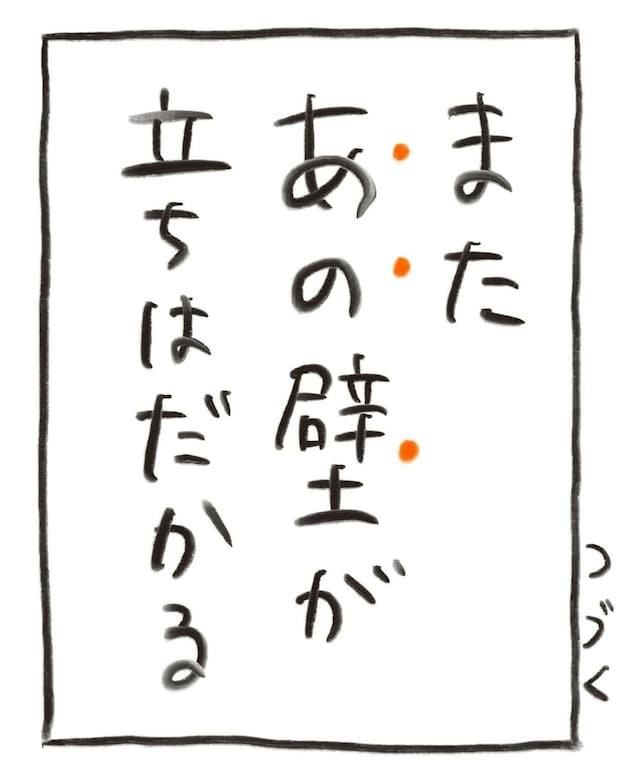 また
あの壁が
立ちはだかる
つづく